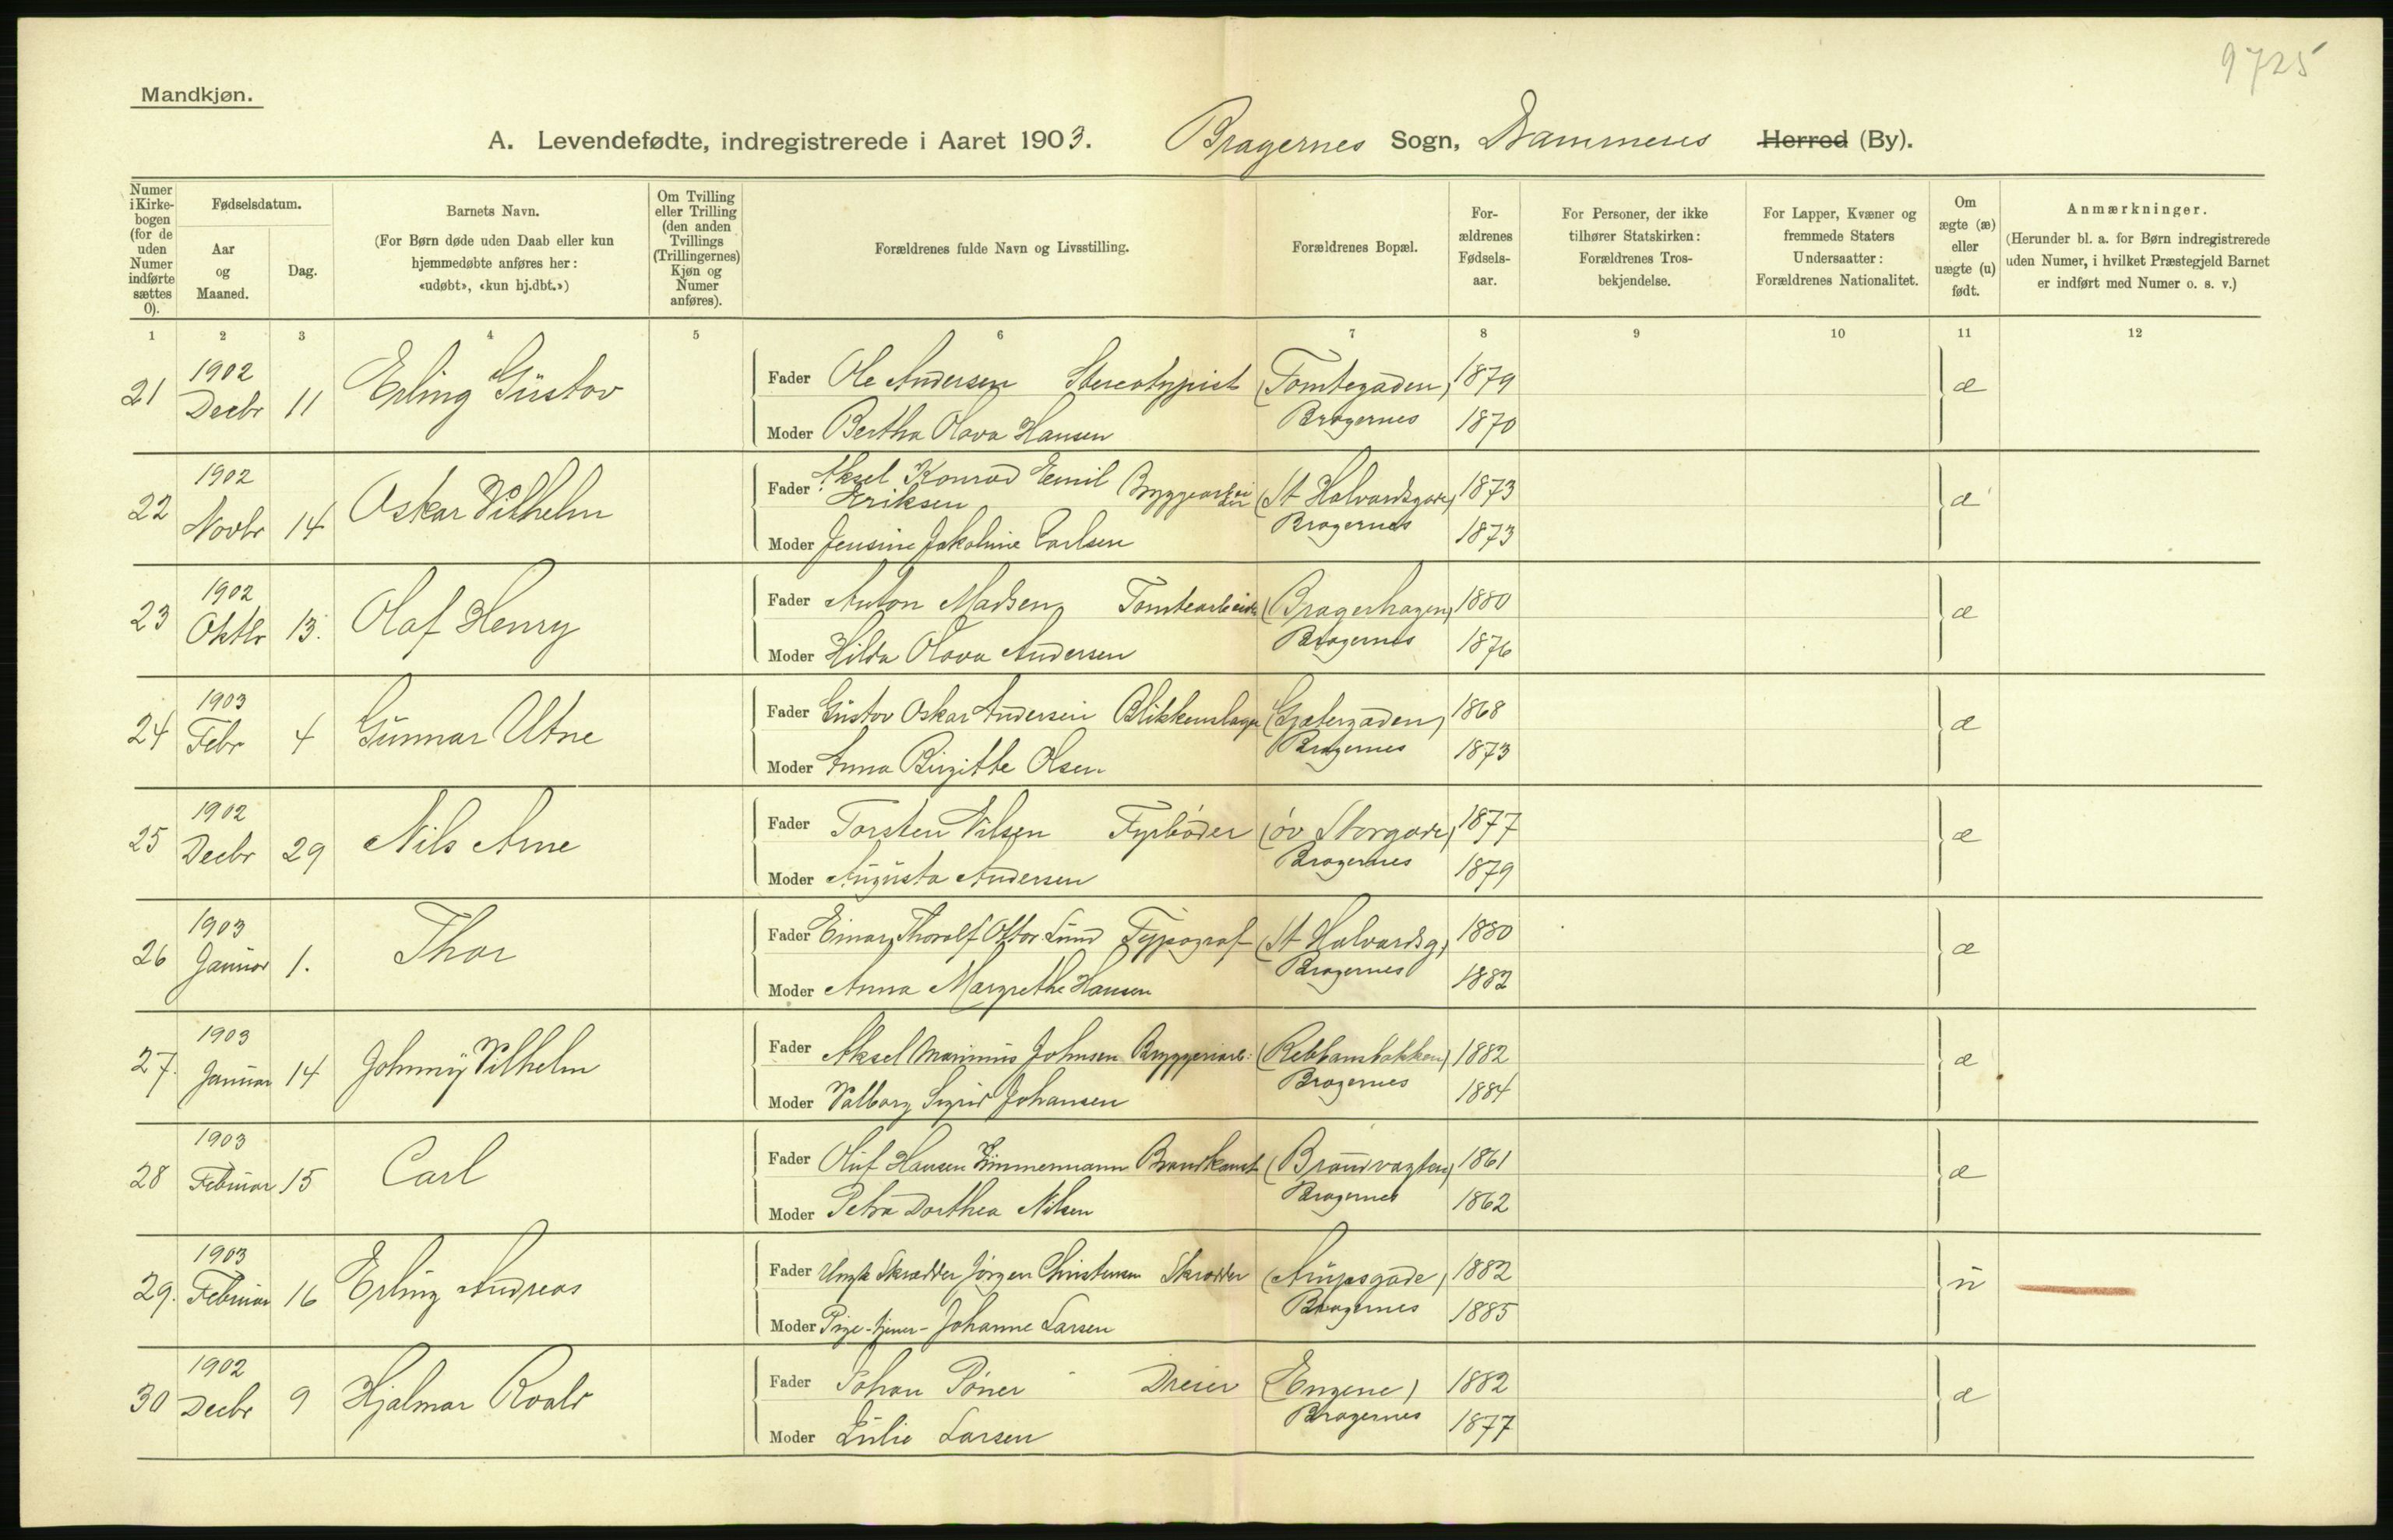 9725
Mandkjøn.
A. Levendefødte, indregistrerede i Aaret 1903. Bragernes Sogn, Drammens Herred (By).
Numer i Kirkebogen (for de uden Numer indførte sættes 0).
Fødselsdatum.
Aar og Maaned.
Dag.
Barnets Navn.
(For Børn døde uden Daab eller kun hjemmedøbte anføres her: «udøbt», «kun hj.dbt.»)
Om Tvilling eller Trilling (den anden Tvillings (Trillingernes) Kjøn og Numer anføres).
Forældrenes fulde Navn og Livsstilling.
Forældrenes Bopæl.
For-ældrenes Fødsels-aar.
For Personer, der ikke tilhører Statskirken: Forældrenes Tros-bekjendelse.
For Lapper, Kvæner og fremmede Staters Undersaatter: Forældrenes Nationalitet.
Om ægte (æ) eller uægte (u) født.
Anmærkninger.
(Herunder bl. a. for Børn indregistrerede uden Numer, i hvilket Præstegjeld Barnet er indført med Numer o. s. v.)
1 2 3 4 5 6 7 8 9 10 11 12
21 1902 Decbr 11 Erling Gustav Fader Ole Andersen Stereotypist (Tomtegaden) 1879 æ
Moder Bertha Olava Hansen Bragernes 1870
22 1902 Novbr 14 Oskar Vilhelm Fader Aksel Konrad Emil Eriksen (St Halvardsgade) 1873 æ
Moder Jensine Jakobine Carlsen Bragernes 1873
23 1902 Oktbr 13. Olaf Henry Fader Anton Madsen Tomtearbeider (Bragerhagen) 1880 æ
Moder Hilda Olava Andersen Bragernes 1876
24 1903 Febr 4 Gunnar Utne Fader Gustav Oskar Andersen Blikkenslager (Gjetergaden) 1868 æ
Moder Anna Birgitte Olsen Bragernes 1873
25 1902 Decbr 29 Nils Arne Fader Torsten Nilsen Fyrbøder (øv Storgade) 1877 æ
Moder Augusta Andersen Bragernes 1879
26 1903 Januar 1. Thor Fader Einar Thorolf Ottar Lund Typograf (St Halvardsg) 1880 æ
Moder Anna Margrethe Hansen Bragernes 1882
27. 1903 Januar 14 Johnny Vilhelm Fader Aksel Marinius Johnsen Bryggeriarb: (Rebbansbakken) 1882 æ
Moder Valborg Sigrid Johansen Bragernes 1884
28 1903 Februar 15 Carl Fader Oluf Hansen Zimmermann Brandkonst (Brandvagten) 1861 æ
Moder Petra Dorthea Nilsen Bragernes 1862
29. 1903 Februar 16 Erling Andreas Fader Ungk Skrædder Jörgen Christensen Skrædder (Arupsgade) 1882 u
Moder Pige - tjener - Johanne Larsen Bragernes 1885
30 1902 Decbr 9 Hjalmar Roald Fader Johan Döner Dreier (Engene) 1882 æ
Moder Julie Larsen Bragernes 1877